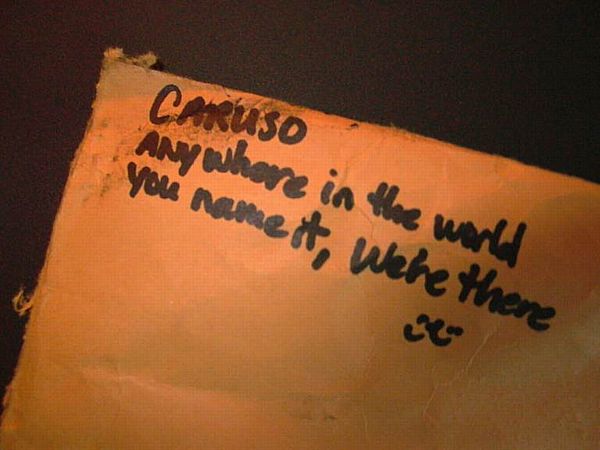 CARUSO
ANywhere in the world
you name it, We're there